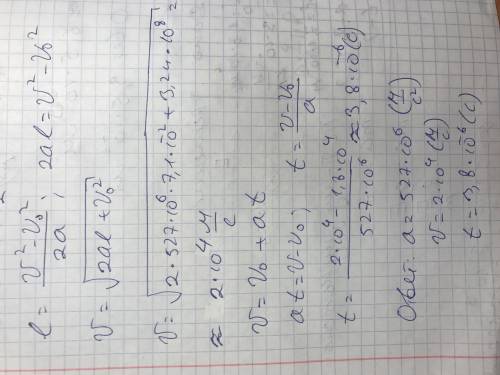 l = (v² - v₀²)/2a ; 2al = v² - v₀²
v = √(2al + v₀²)
v = √(2·527·10⁶·7,1·10⁻² + 3,24·10⁸) ≈
≈ 2·10⁴ м/с
v = v₀ + at
at = v - v₀ ; t = (v - v₀)/a
t = (2·10⁴ - 1,8·10⁴)/(527·10⁶) ≈ 3,8·10⁻⁶ (с)
Ответ: a = 527·10⁶ (м/с²)
v = 2·10⁴ (м/с)
t = 3,8·10⁻⁶ (с)